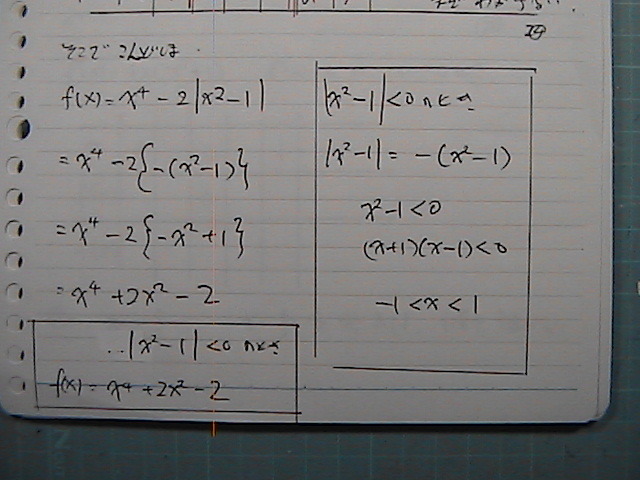 そこで こんどは
f(x) = x⁴ - 2|x² - 1|
= x⁴ - 2{-(x² - 1)}
= x⁴ - 2{-x² + 1}
= x⁴ + 2x² - 2
∴|x² - 1| < 0 のとき
f(x) = x⁴ + 2x² - 2
|x² - 1| < 0 のとき
|x² - 1| = -(x² - 1)
x² - 1 < 0
(x+1)(x-1) < 0
-1 < x < 1